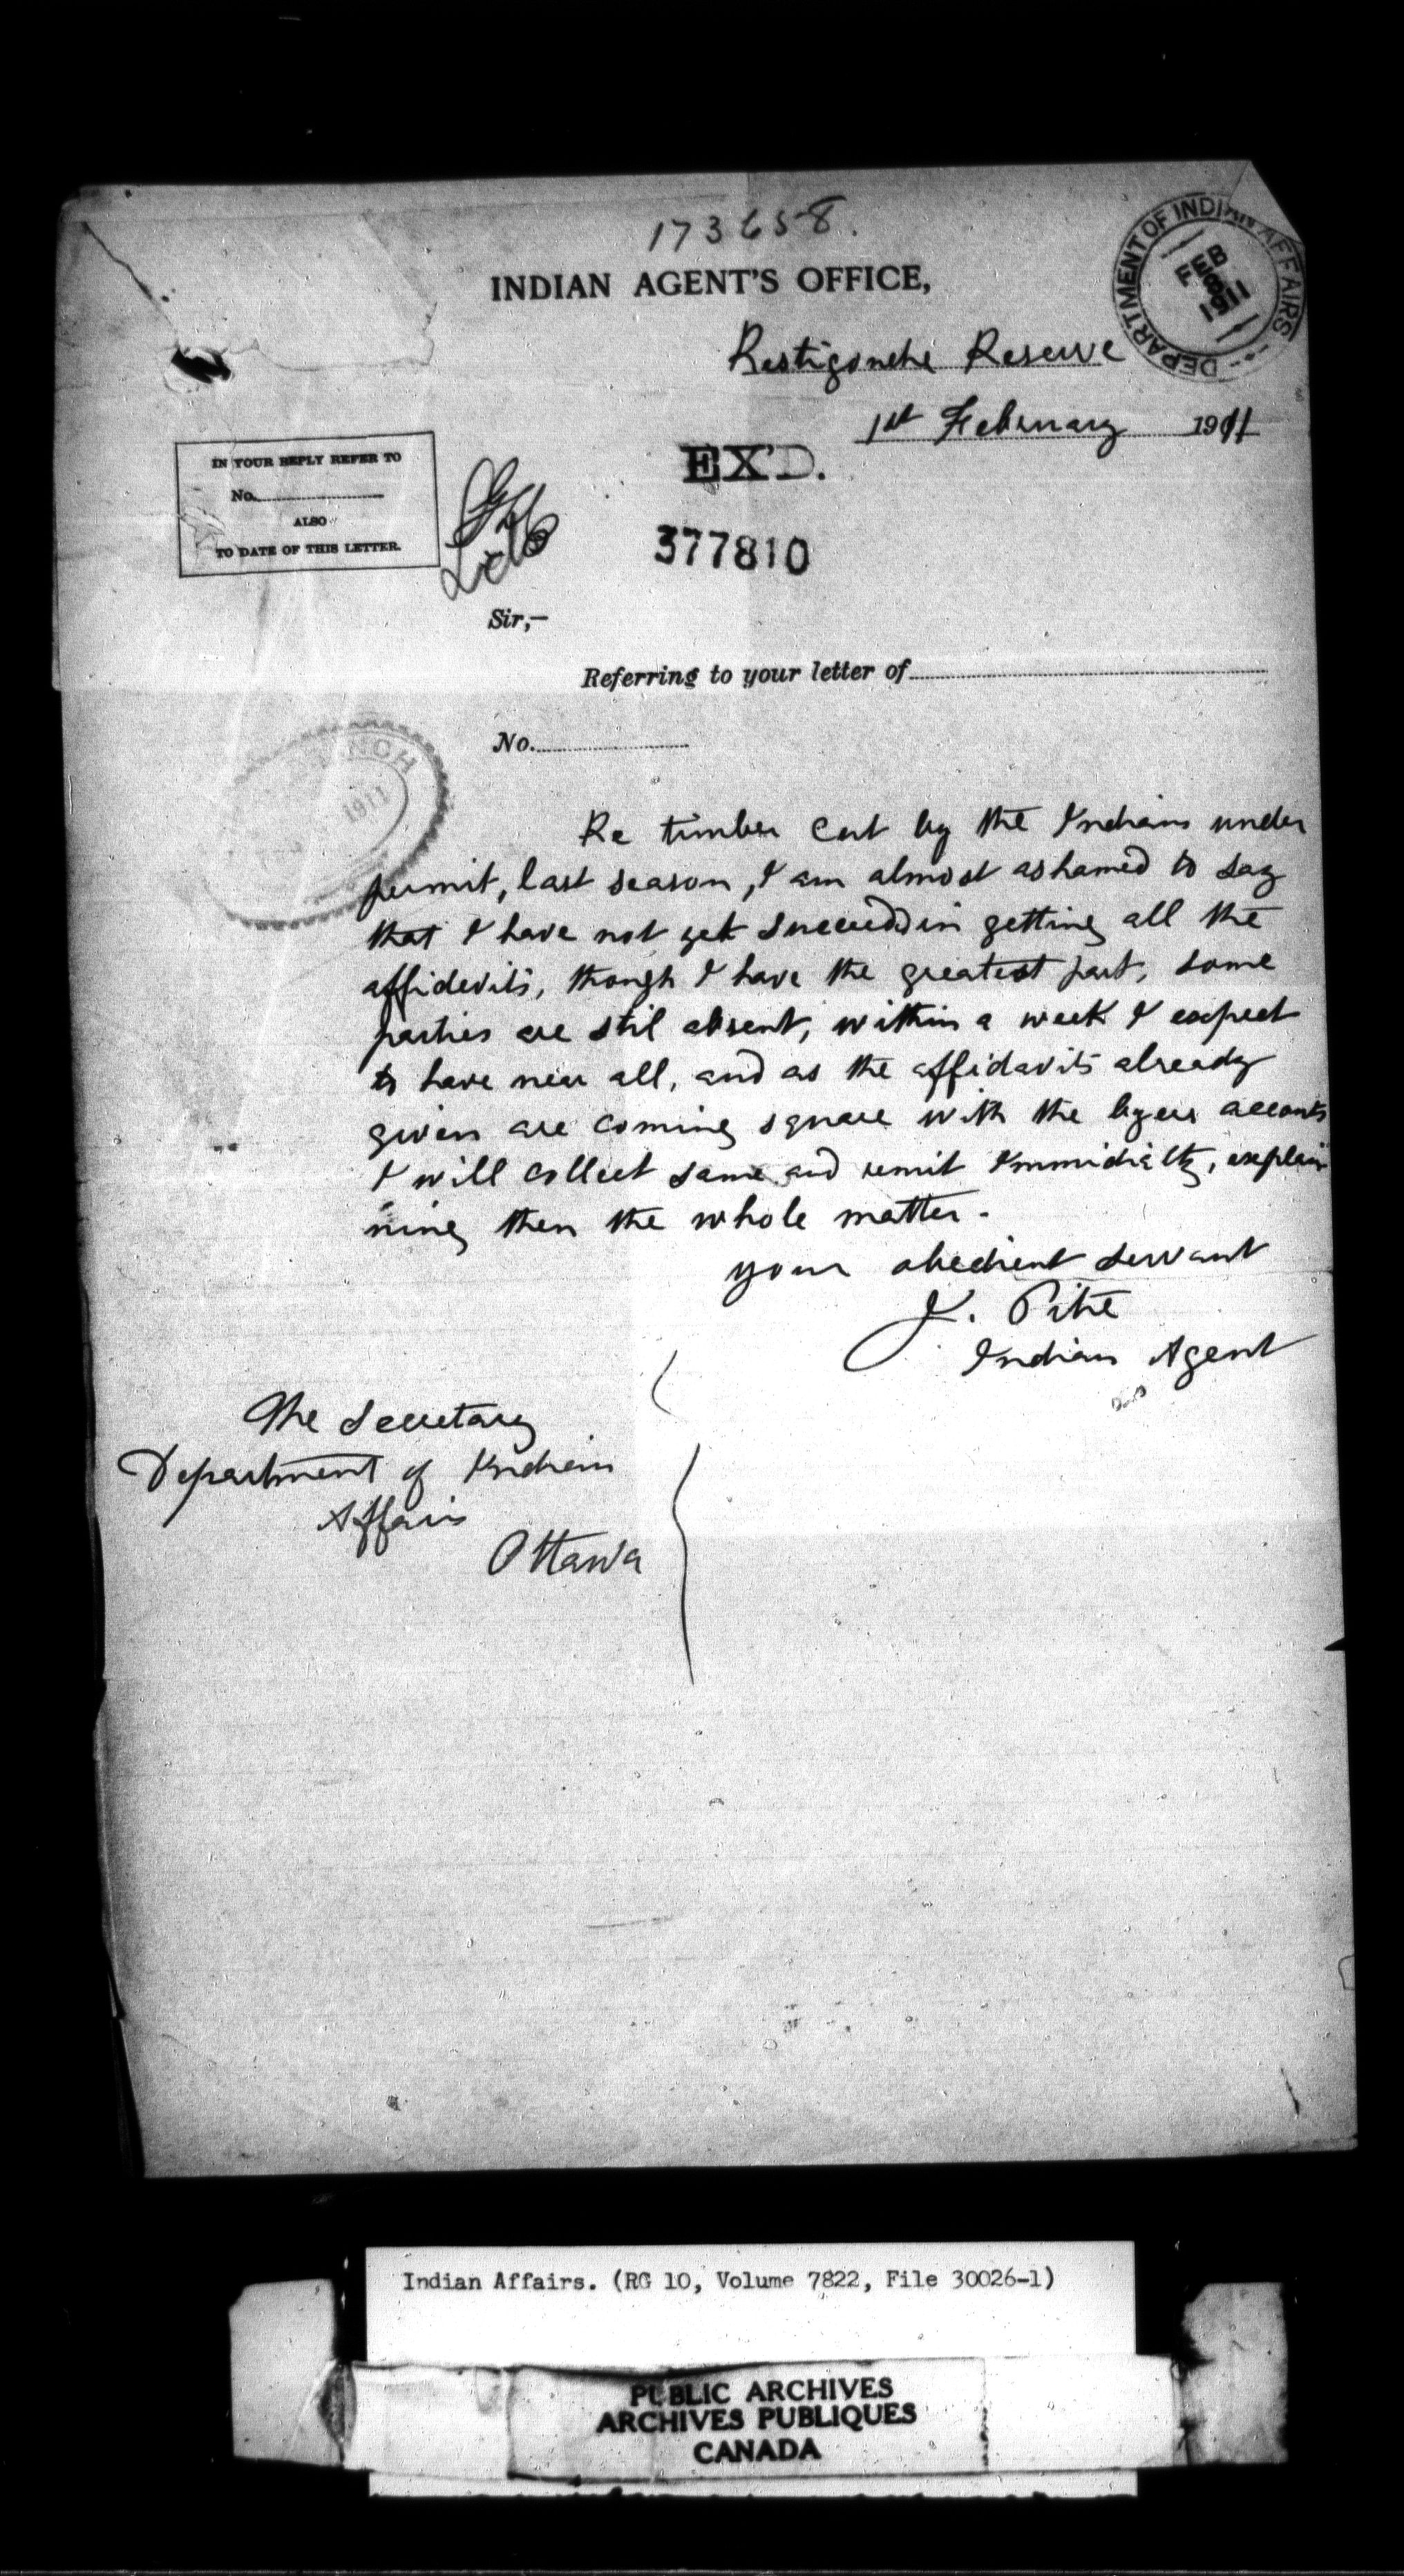 173658.
INDIAN AGENT'S OFFICE,
DEPARTMENT OF INDIAN AFFAIRS
FEB
8
1911
Restigouche Reserve
1st February 1911
EX'D.
IN YOUR REPLY REFER TO
No.
ALSO
TO DATE OF THIS LETTER.
377810
Sir,—
Referring to your letter of
No.
1911
Re timber Cut by the Indians under
permit, last season, I am almost ashamed to say
that I have not yet succeedd in getting all the
affidevits, though I have the greatest part, some
parties are stil absent, within a week I expect
to have near all, and as the affidavits already
given are coming square with the byers accounts
I will collect same and remit Immidiatly, explai
ning then the whole matter.
your obedient servant
J. Pitre
Indian Agent
The Secretary
Department of Indian
Affairs
Ottawa
Indian Affairs. (RG 10, Volume 7822, File 30026-1)
PUBLIC ARCHIVES
ARCHIVES PUBLIQUES
CANADA